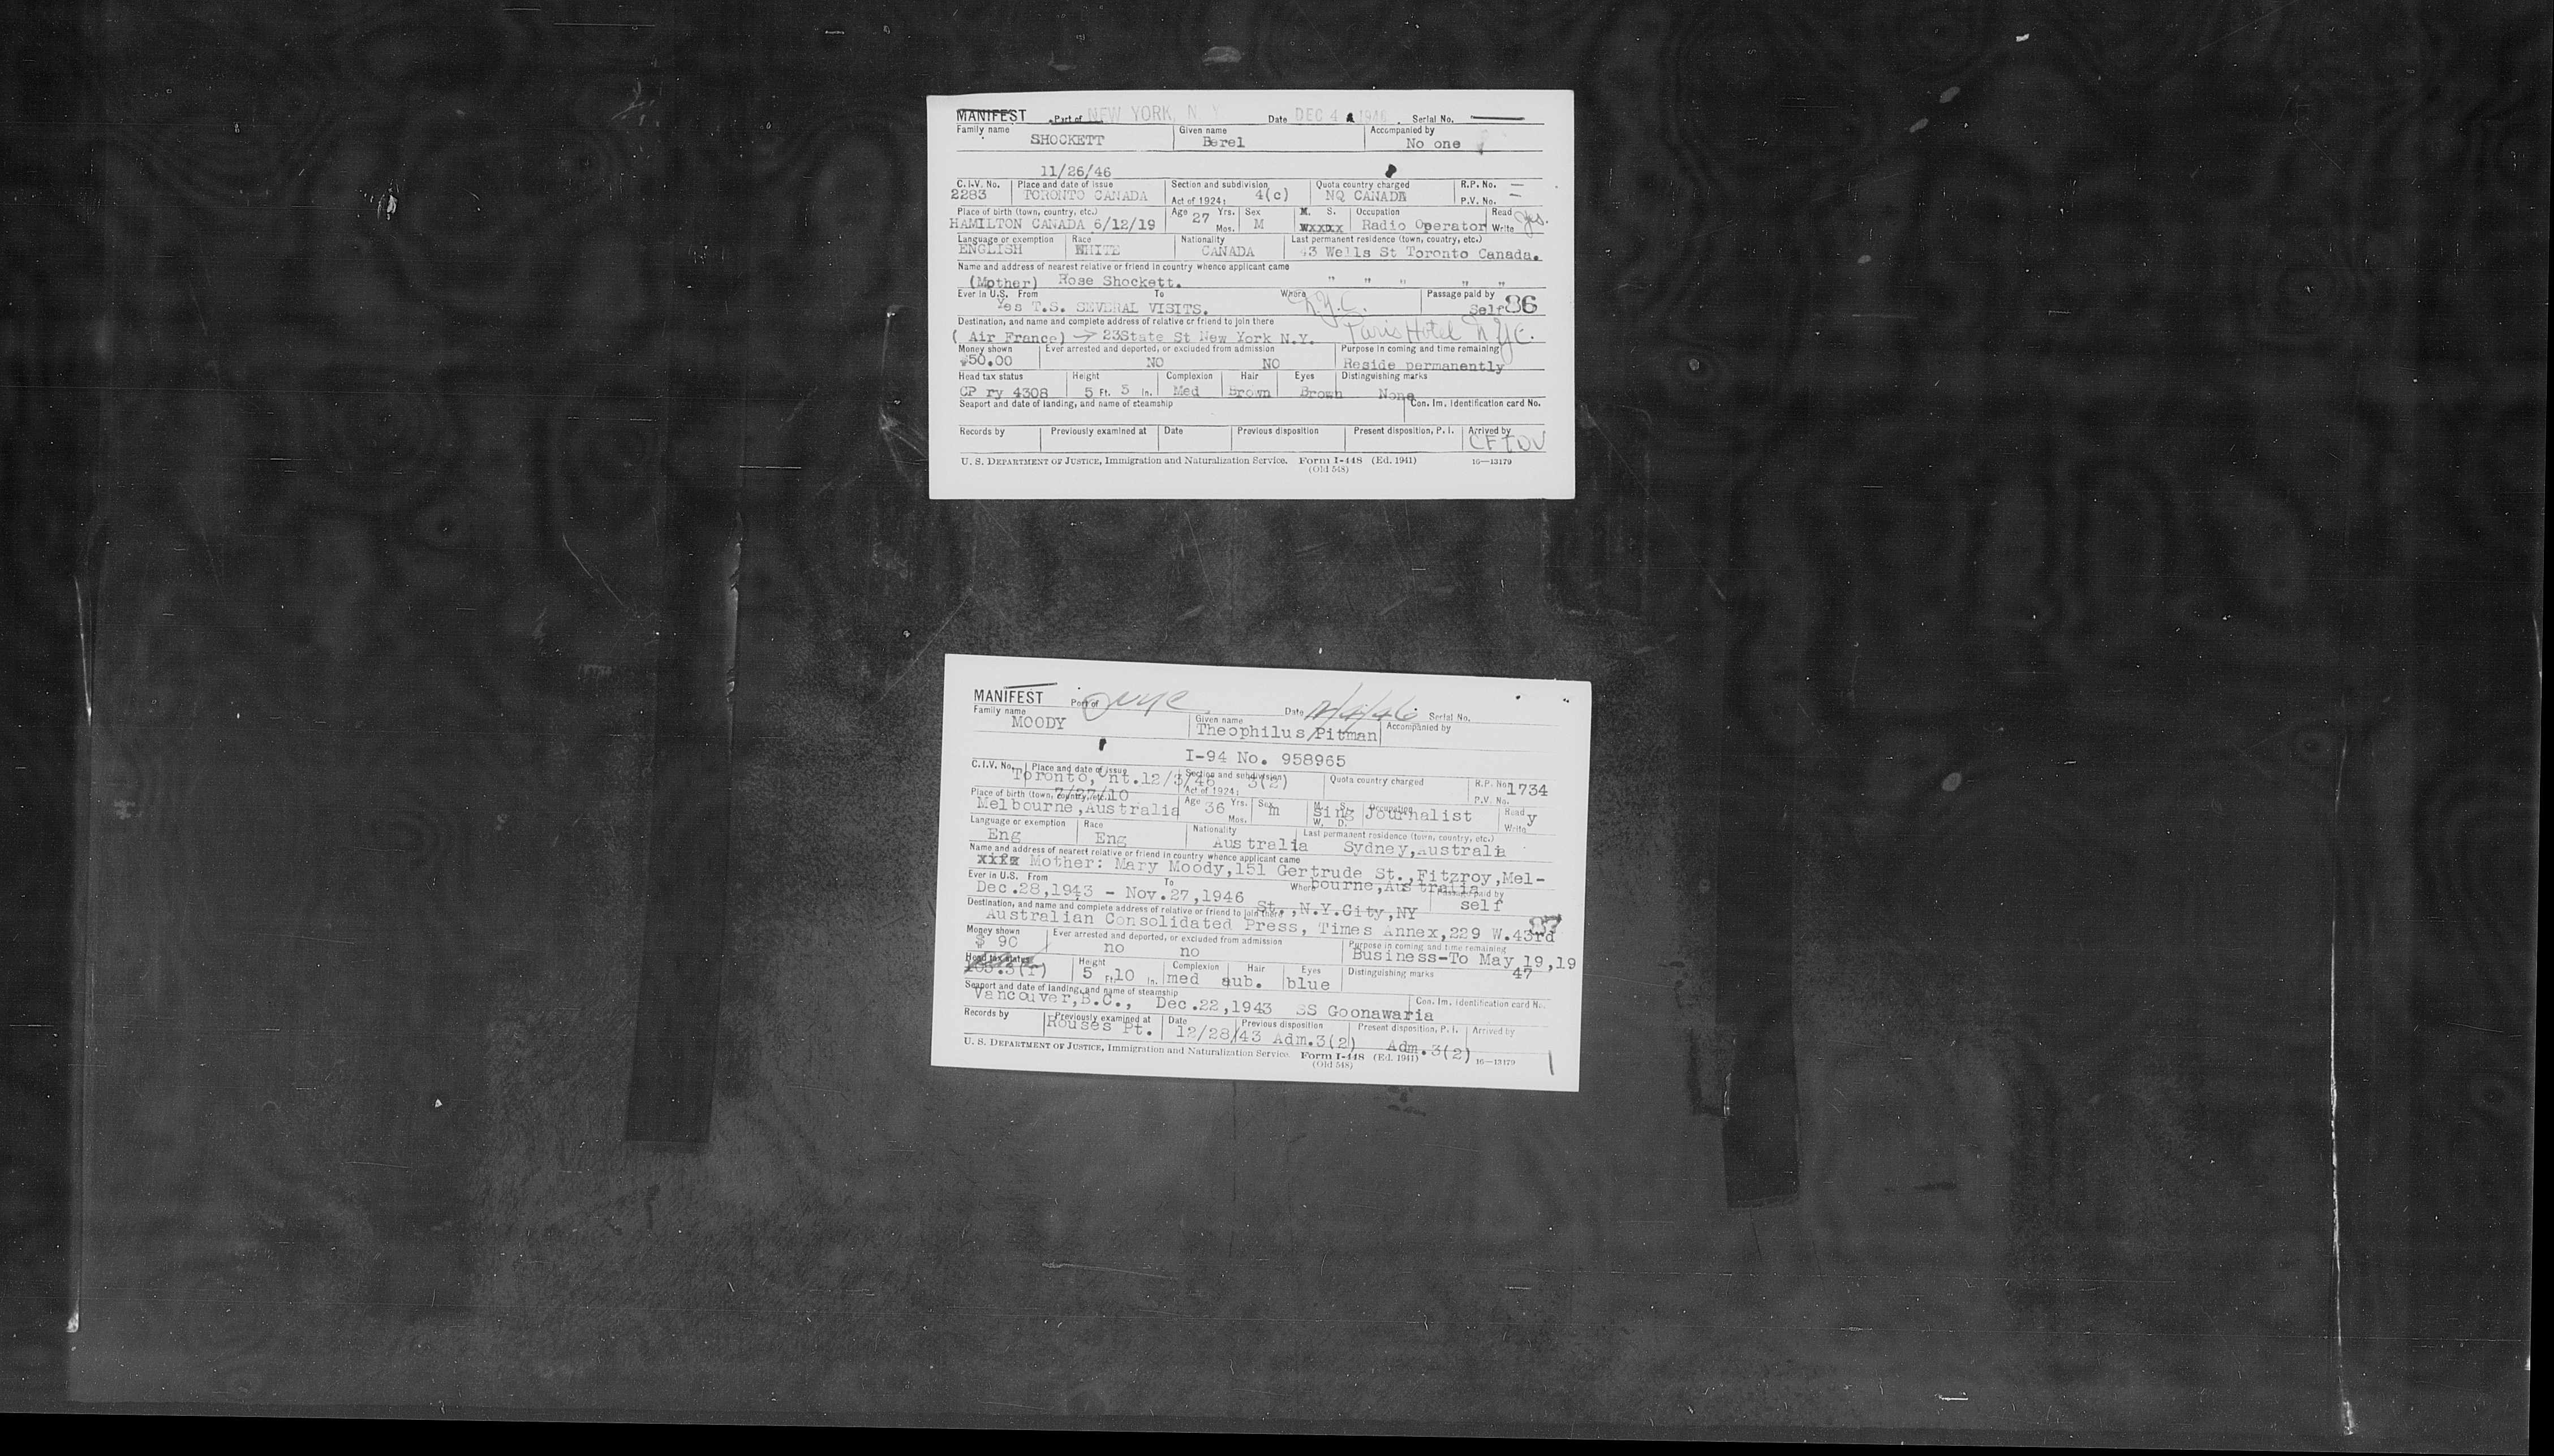 MANIFEST Port of NEW YORK, N. Y. Date DEC 4 1946 Serial No.
Family name Given name Accompanied by
SHOCKETT Berel No one
11/26/46
C.I.V. No. Place and date of issue Section and subdivision Quota country charged R.P. No. —
2283 TORONTO CANADA Act of 1924: 4(c) NQ CANADA P.V. No. —
Place of birth (town, country, etc.) Age 27 Yrs. Sex M. S. Occupation Read Yes.
HAMILTON CANADA 6/12/19 Mos. M WXXDX Radio Operator Write
Language or exemption Race Nationality Last permanent residence (town, country, etc.)
ENGLISH WHITE CANADA 43 Wells St Toronto Canada.
Name and address of nearest relative or friend in country whence applicant came
(Mother) Rose Shockett. " " " " "
Ever in U.S. From To Where N.Y.C. Passage paid by
Yes T.S. SEVERAL VISITS. Self 86
Destination, and name and complete address of relative or friend to join there
( Air France) → 23State St New York N.Y. Paris Hotel N.Y.C.
Money shown Ever arrested and deported, or excluded from admission Purpose in coming and time remaining
$50.00 NO NO Reside permanently
Head tax status Height Complexion Hair Eyes Distinguishing marks
CP ry 4308 5 Ft. 5 In. Med Brown Brown None
Seaport and date of landing, and name of steamship Con. Im. Identification card No.
Records by Previously examined at Date Previous disposition Present disposition, P. I. Arrived by
CFTDV
U. S. DEPARTMENT OF JUSTICE, Immigration and Naturalization Service. Form I-448 (Ed. 1941) 16—13179
(Old 548)
MANIFEST Port of NYC Date 12/4/46 Serial No.
Family name Given name Accompanied by
MOODY Theophilus/Pitman
I-94 No. 958965
C.I.V. No. Place and date of issue Section and subdivision Quota country charged R.P. No. 1734
Toronto, Ont. 12/3/46 Act of 1924: 3(2) P.V. No.
Place of birth (town, country, etc.) 7/27/10 Age 36 Yrs. Sex M. S. Occupation Read y
Melbourne,Australia Mos. m Sing W. D. Journalist Write
Language or exemption Race Nationality Last permanent residence (town, country, etc.)
Eng Eng Australia Sydney,Australia
Name and address of nearest relative or friend in country whence applicant came
Mother: Mary Moody,151 Gertrude St.,Fitzroy,Mel-
Ever in U.S. From To Where bourne,Australia Passage paid by
Dec.28,1943 - Nov.27,1946 St.,N.Y.City,NY self
Destination, and name and complete address of relative or friend to join there 87
Australian Consolidated Press, Times Annex,229 W.43rd
Money shown Ever arrested and deported, or excluded from admission Purpose in coming and time remaining
$ 90 no no Business-To May 19,19
47
Head tax status Height Complexion Hair Eyes Distinguishing marks
105.3(f) 5 Ft. 10 In. med aub. blue
Seaport and date of landing, and name of steamship Con. Im. Identification card No.
Vancouver,B.C., Dec.22,1943 SS Goonawaria
Records by Previously examined at Date Previous disposition Present disposition, P. I. Arrived by
Rouses Pt. 12/28/43 Adm.3(2) Adm.3(2)
U. S. DEPARTMENT OF JUSTICE, Immigration and Naturalization Service. Form I-448 (Ed. 1941) 16—13179
(Old 548)